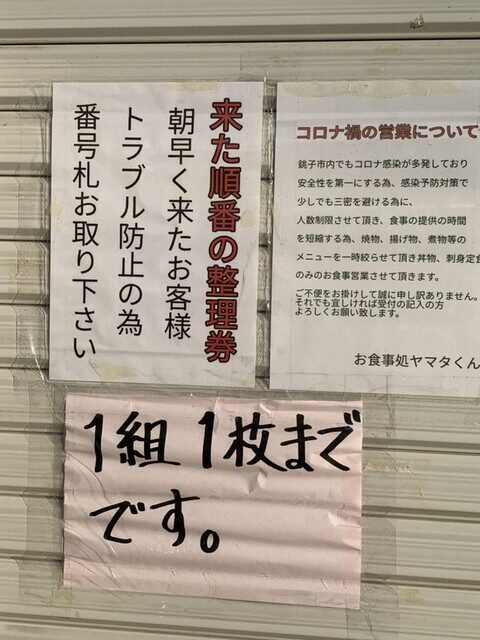 来た順番の整理券
朝早く来たお客様
トラブル防止の為
番号札お取り下さい
コロナ禍の営業について
銚子市内でもコロナ感染が多発しており
安全性を第一にする為、感染予防対策で
少しでも三密を避ける為に、
人数制限させて頂き、食事の提供の時間
を短縮する為、焼物、揚げ物、煮物等の
メニューを一時絞らせて頂き丼物、刺身定食
のみのお食事営業させて頂きます。
ご不便をお掛けして誠に申し訳ありません。
それでも宜しければ受付の記入の方
よろしくお願い致します。
お食事処ヤマタくん
1組1枚まで
です。